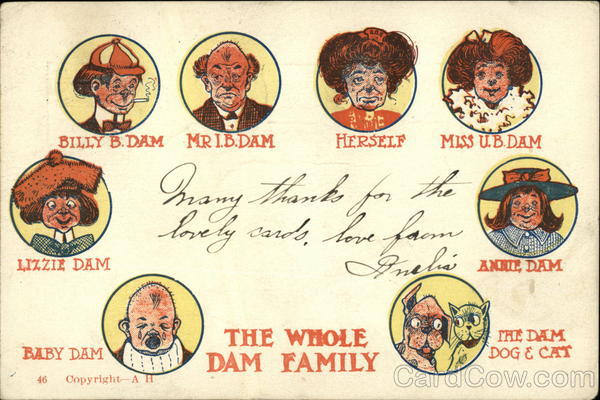 BILLY B. DAM
MR I.B. DAM
HERSELF
MISS U.B. DAM
Many thanks for the
lovely cards. love from
Amelia
LIZZIE DAM
ANNIE DAM
BABY DAM
THE WHOLE
DAM FAMILY
THE DAM
DOG & CAT
46 Copyright—A H
CardCow.com